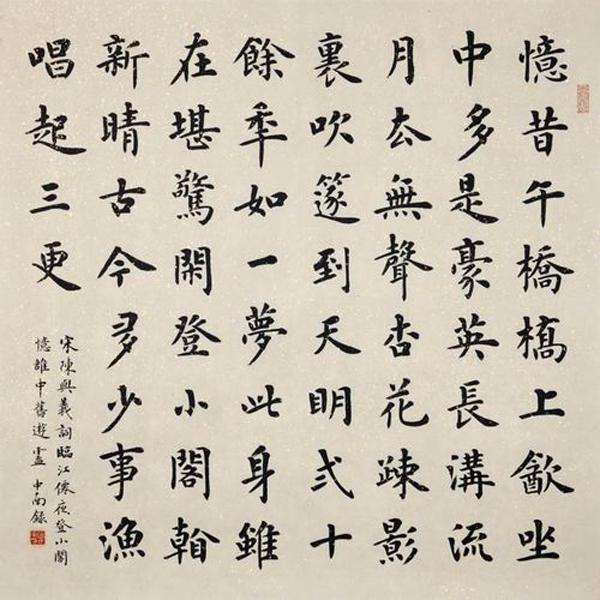 憶昔午橋橋上飲坐
中多是豪英長溝流
月去無聲杏花疎影
裏吹篴到天明弍十
餘年如一夢此身雖
在堪驚閑登小閣看
新晴古今多少事漁
唱起三更
宋陳與義詞臨江僊夜登小閣
憶雒中舊遊 盧中南錄